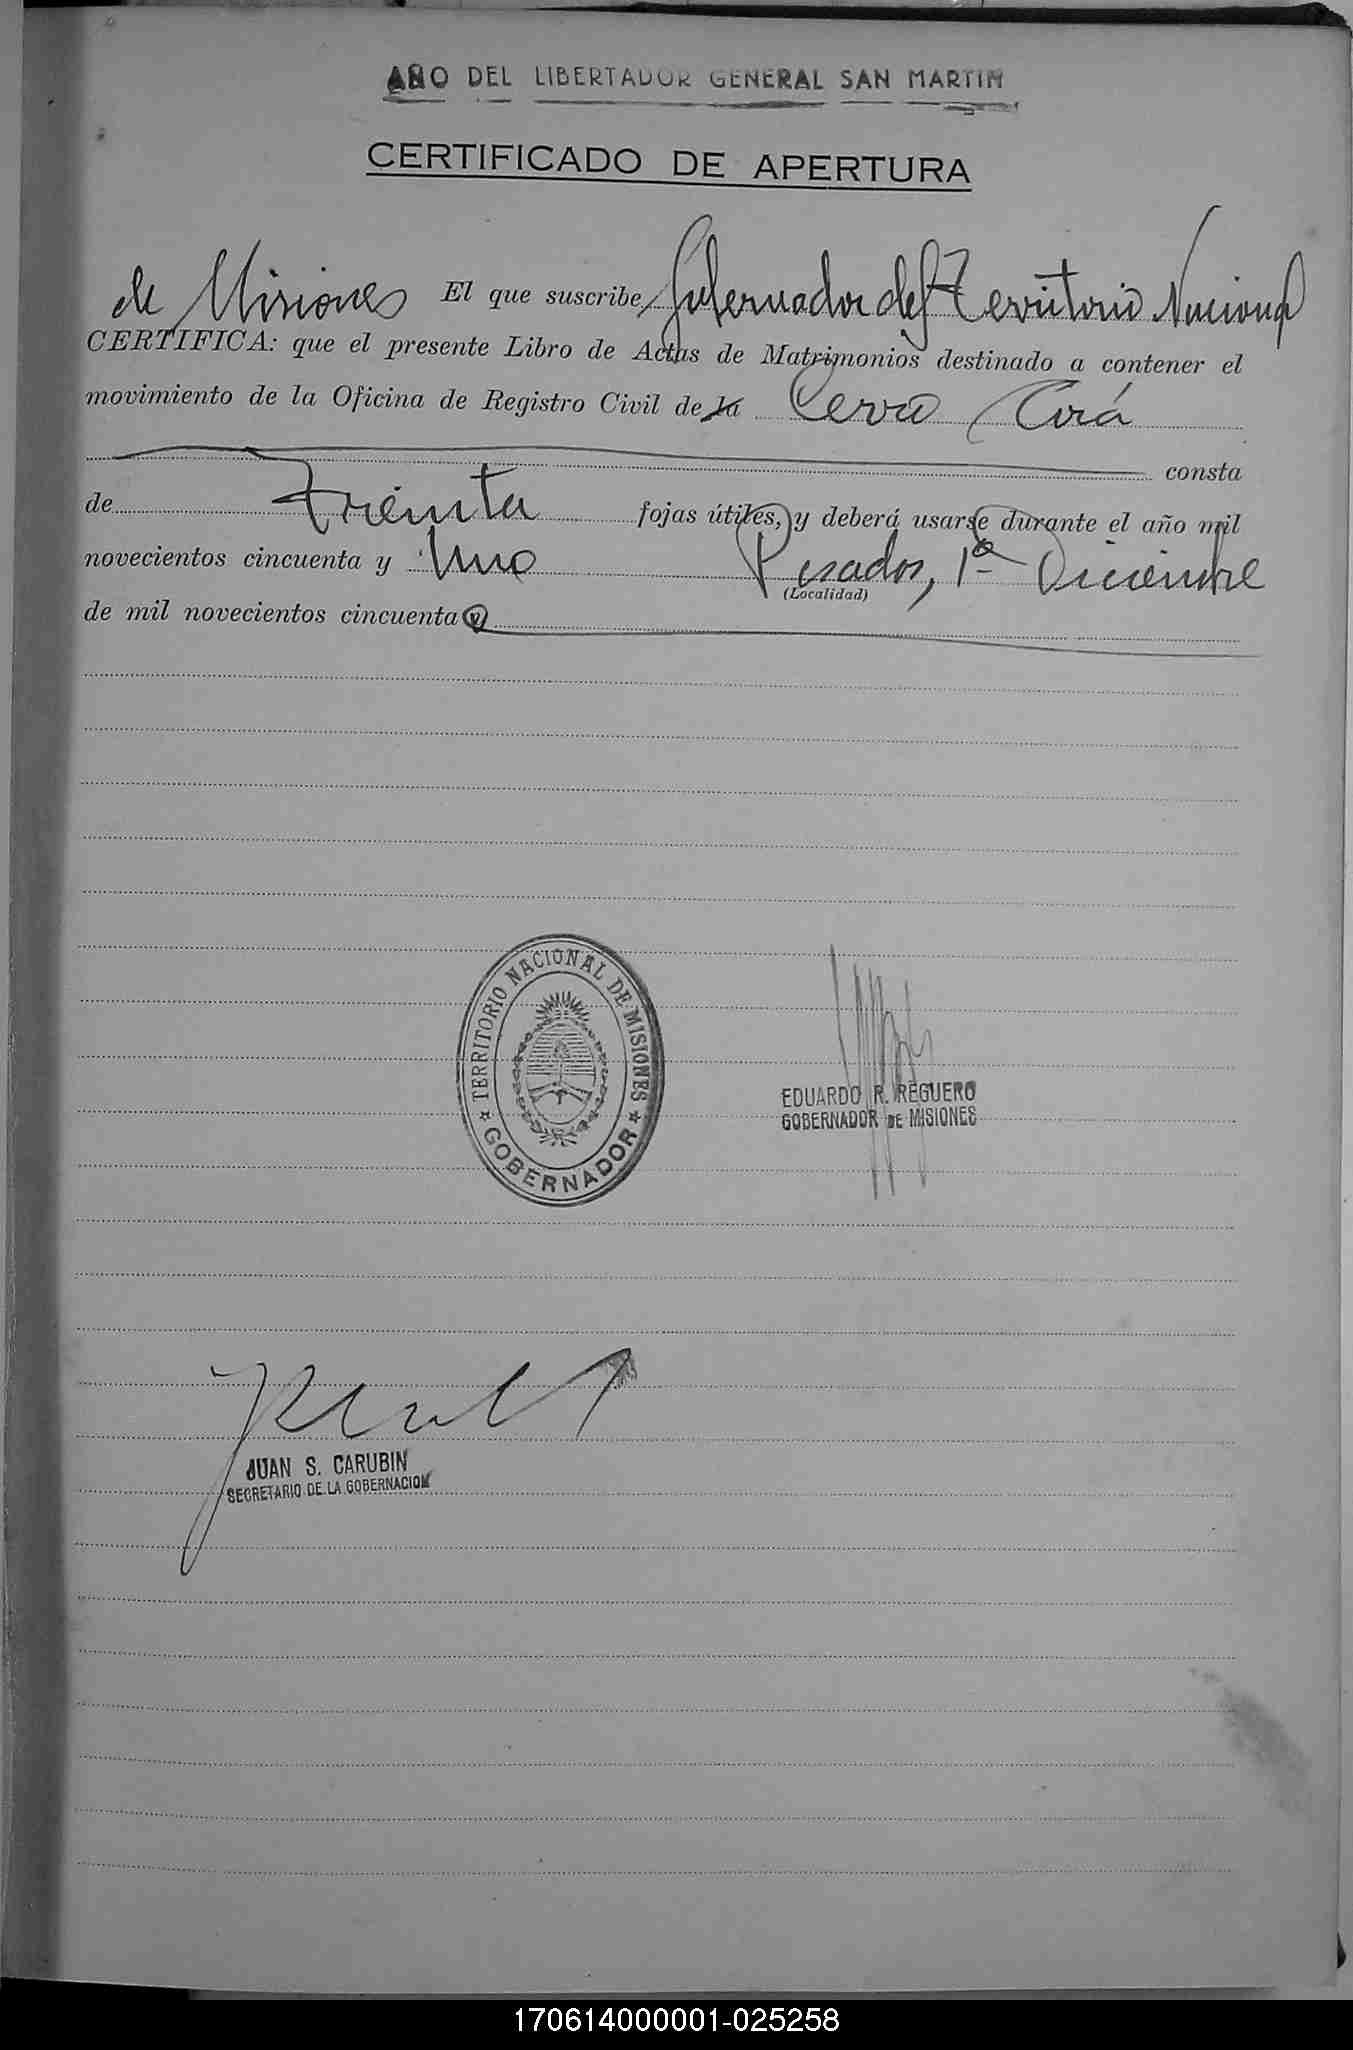 AÑO DEL LIBERTADOR GENERAL SAN MARTIN
CERTIFICADO DE APERTURA
de Misiones El que suscribe Gobernador del Territorio Nacional
CERTIFICA: que el presente Libro de Actas de Matrimonios destinado a contener el
movimiento de la Oficina de Registro Civil de la Cerro Corá
consta
de Treinta fojas útiles, y deberá usarse durante el año mil
novecientos cincuenta y Uno Posadas, 1º Diciembre
(Localidad)
de mil novecientos cincuenta
TERRITORIO NACIONAL DE MISIONES
GOBERNADOR
EDUARDO R. REGUERO
GOBERNADOR DE MISIONES
JUAN S. CARUBIN
SECRETARIO DE LA GOBERNACION
170614000001-025258